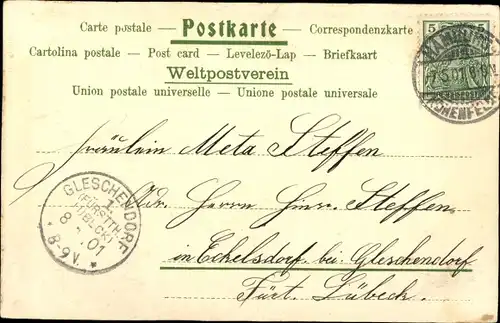 Carte postale — Postkarte — Correspondenzkarte
Cartolina postale — Post card — Levelező-Lap — Briefkaart
Weltpostverein
Union postale universelle — Unione postale universale
5
HAMBURG
7.5.01
HOHENFELDE
Fräulein Meta Steffen
Adr. Herrn Hinr. Steffen
in Eckelsdorf bei Gleschendorf
Fürt. Lübeck.
GLESCHENDORF
1
(FÜRSTTH.
LÜBECK)
8 01
8-9 V.